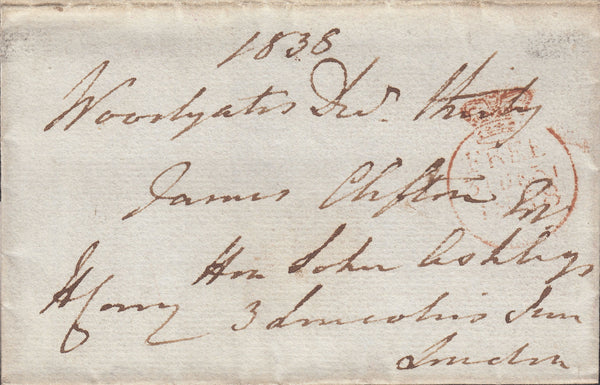 1838
Woodyates Dec.r thirty
James Clifton Esqr
Hon John Ashleys
3 Lincolns Inn
London
FREE